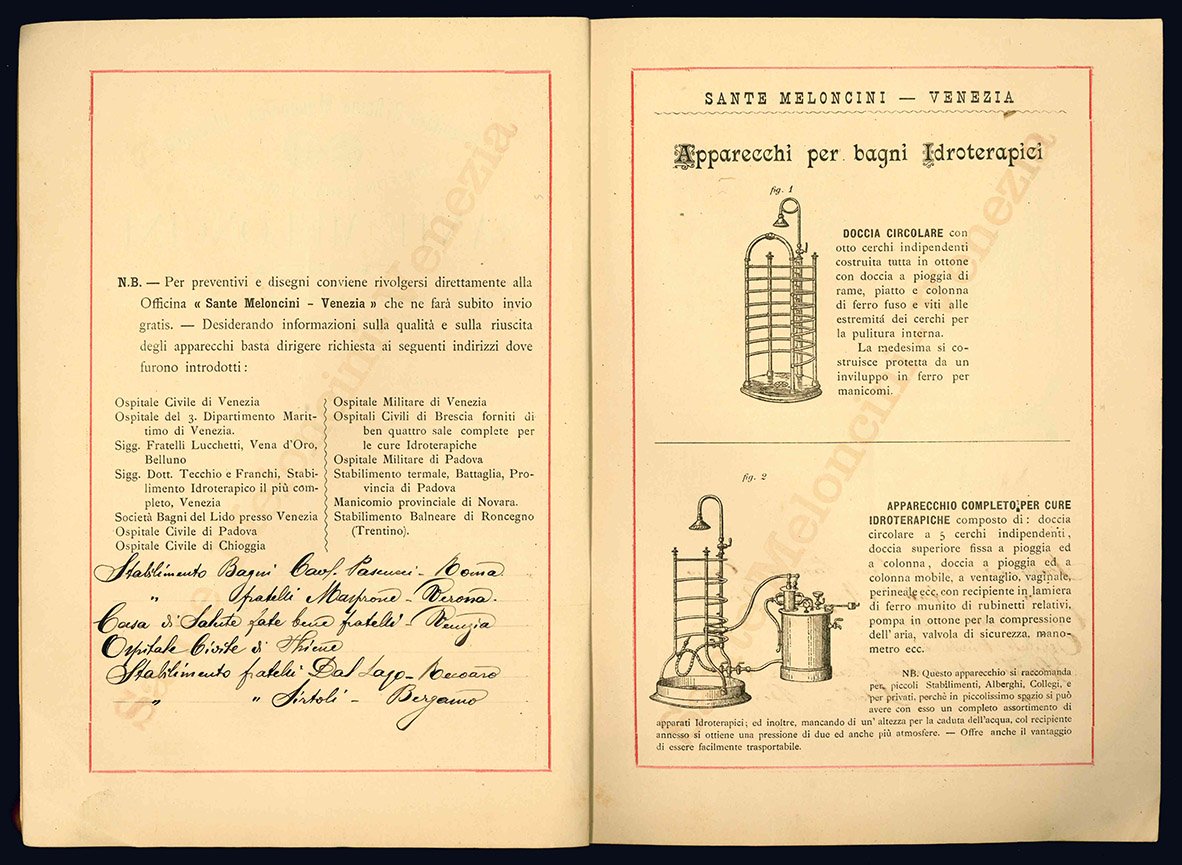 N.B. — Per preventivi e disegni conviene rivolgersi direttamente alla
Officina « Sante Meloncini - Venezia » che ne farà subito invio
gratis. — Desiderando informazioni sulla qualità e sulla riuscita
degli apparecchi basta dirigere richiesta ai seguenti indirizzi dove
furono introdotti :
Ospitale Civile di Venezia
Ospitale del 3. Dipartimento Marit-
timo di Venezia.
Sigg. Fratelli Lucchetti, Vena d'Oro,
Belluno
Sigg. Dott. Tecchio e Franchi, Stabi-
limento Idroterapico il più com-
pleto, Venezia
Società Bagni del Lido presso Venezia
Ospitale Civile di Padova
Ospitale Civile di Chioggia
Ospitale Militare di Venezia
Ospitali Civili di Brescia forniti di
ben quattro sale complete per
le cure Idroterapiche
Ospitale Militare di Padova
Stabilimento termale, Battaglia, Pro-
vincia di Padova
Manicomio provinciale di Novara.
Stabilimento Balneare di Roncegno
(Trentino).
Stabilimento Bagni Cav. Pascucci - Roma
" fratelli - Verona
Casa di Salute fate bene fratelli - Venezia
Ospitale Civile di Thiene
Stabilimento fratelli Dal Lago - Recoaro
" " Sirtoli - Bergamo
SANTE MELONCINI — VENEZIA
Apparecchi per bagni Idroterapici
fig. 1
DOCCIA CIRCOLARE con
otto cerchi indipendenti
costruita tutta in ottone
con doccia a pioggia di
rame, piatto e colonna
di ferro fuso e viti alle
estremità dei cerchi per
la pulitura interna.
La medesima si co-
struisce protetta da un
inviluppo in ferro per
manicomi.
fig. 2
APPARECCHIO COMPLETO PER CURE
IDROTERAPICHE composto di : doccia
circolare a 5 cerchi indipendenti,
doccia superiore fissa a pioggia ed
a colonna, doccia a pioggia ed a
colonna mobile, a ventaglio, vaginale,
perineale ecc, con recipiente in lamiera
di ferro munito di rubinetti relativi,
pompa in ottone per la compressione
dell'aria, valvola di sicurezza, mano-
metro ecc.
NB. Questo apparecchio si raccomanda
per piccoli Stabilimenti, Alberghi, Collegi, e
per privati, perchè in piccolissimo spazio si può
avere con esso un completo assortimento di
apparati Idroterapici; ed inoltre, mancando di un' altezza per la caduta dell'acqua, col recipiente
annesso si ottiene una pressione di due ed anche più atmosfere. — Offre anche il vantaggio
di essere facilmente trasportabile.